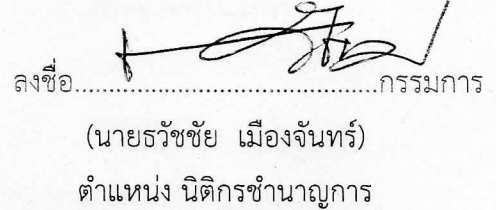 ลงชื่อ........................................กรรมการ
(นายธวัชชัย เมืองจันทร์)
ตำแหน่ง นิติกรชำนาญการ